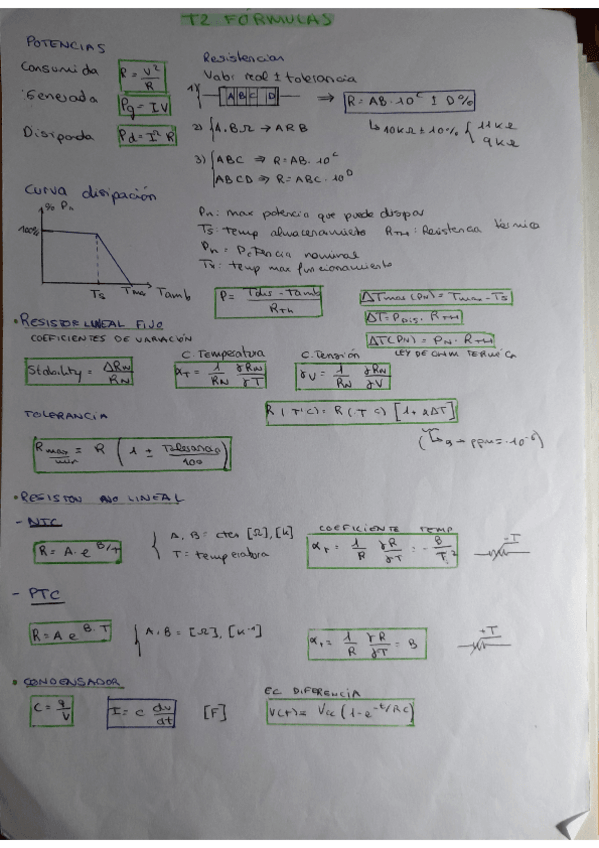 T2 FORMULAS
POTENCIAS
Consumida P = V²/R
Generada Pg = I V
Disipada Pd = I² R
Resistencias
Valor real ± tolerancia
1) A B C D ⇒ R = AB · 10^C ± D%
↳ 10KΩ ± 10% { 11KΩ
9KΩ
2) { A. B. Ω → ARB
3) { ABC ⇒ R = AB · 10^C
ABCD ⇒ R = ABC · 10^D
Curva disipación
% Pn
100%
Ts Tmax Tamb
Pn: max potencia que puede disipar
Ts: temp almacenamiento RTH: Resistencia térmica
Pn = Potencia nominal
temp max funcionamiento
P = (Tdis - Tamb) / RTH
ΔTmax (PN) = Tmax - Ts
ΔT = PDis · RTH
ΔT(PN) = PN · RTH
LEY DE OHM TERMICA
• RESISTOR LINEAL FIJO
COEFICIENTES DE VARIACIÓN
Stability = ΔRN / RN
C. Temperatura
αT = 1/RN γRN/γT
C. Tensión
γV = 1/RN γRN/γV
R (T'C) = R (T C) [1 + αΔT]
TOLERANCIA
R max/min = R (1 ± Tolerancia/100)
• RESISTOR NO LINEAL
- NTC
R = A · e^B/T
{ A, B = ctes [Ω], [K]
T = temperatura
COEFICIENTE TEMP
αT = 1/R γR/γT = - B/T²
-T
- PTC
R = A e^B·T
{ A, B = [Ω], [K⁻¹]
αT = 1/R γR/γT = B
+T
• CONDENSADOR
C = q/V
I = C dv/dt
[F]
EC DIFERENCIA
V(t) = Vcc (1 - e^-t/RC)